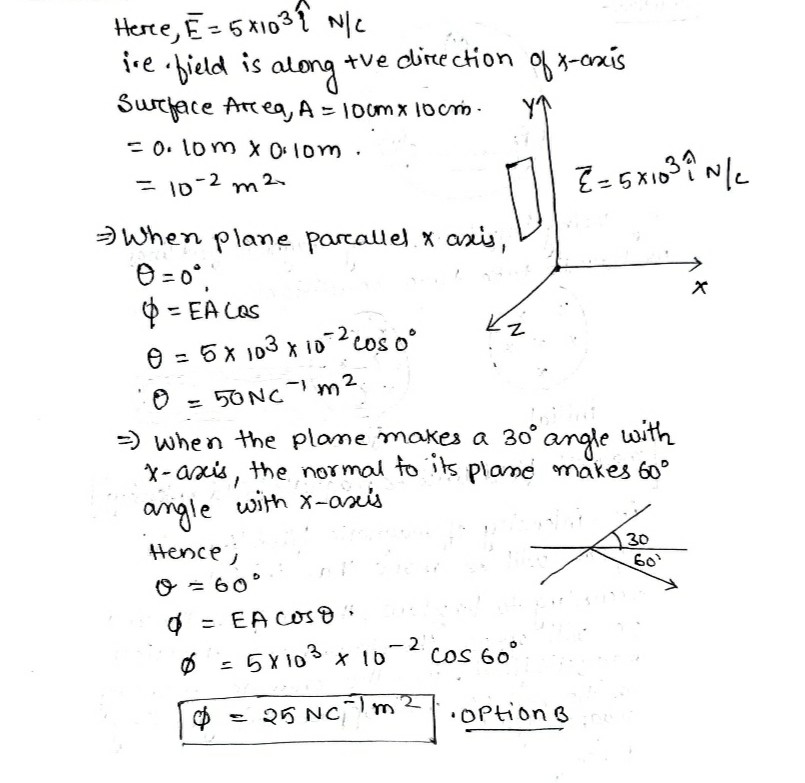 Here, E̅ = 5×10³ î N/C
i.e. field is along +ve direction of x-axis
Surface Area, A = 10cm × 10cm.
= 0.10m × 0.10m.
= 10⁻² m²
Y
E̅ = 5×10³ î N/C
X
Z
⇒ When plane parallel x axis,
θ = 0°,
ϕ = EA Cos
θ = 5 × 10³ × 10⁻² cos 0°
θ = 50 NC⁻¹ m²
⇒ When the plane makes a 30° angle with
x-axis, the normal to its plane makes 60°
angle with x-axis
30
60°
Hence,
θ = 60°
ϕ = EA cosθ.
ϕ = 5×10³ × 10⁻² cos 60°
ϕ = 25 NC⁻¹ m² . OPtion B